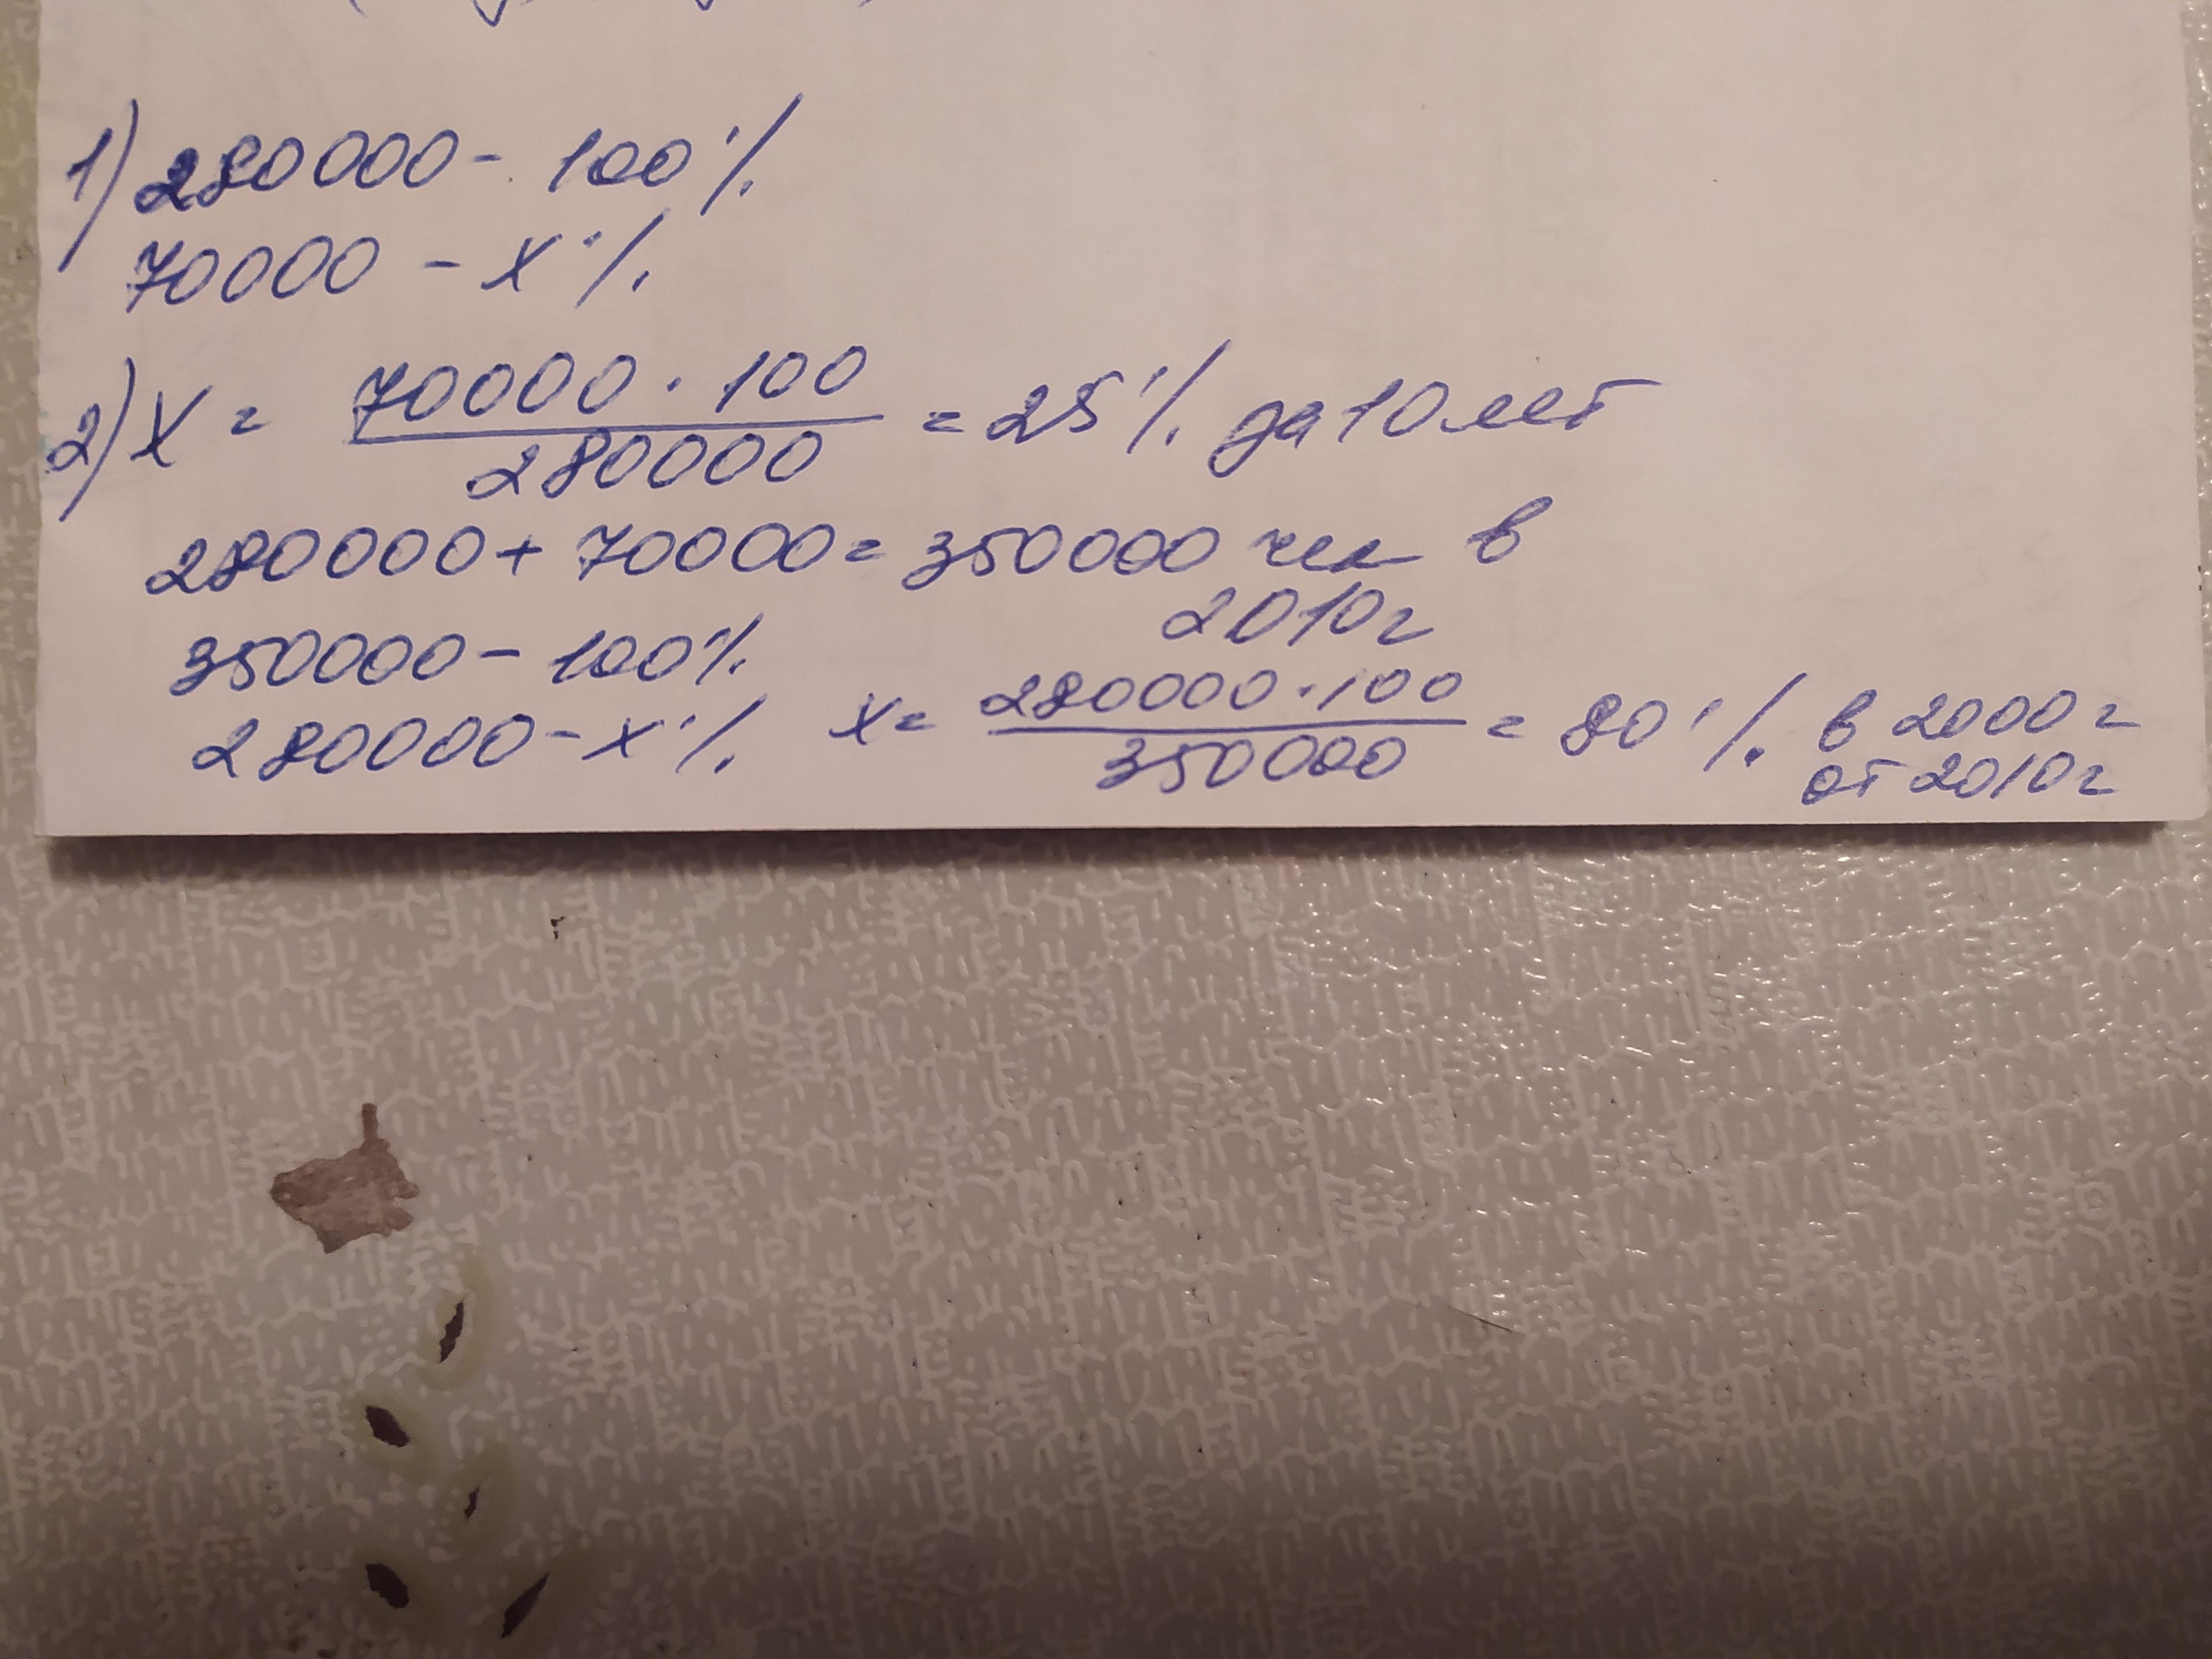 1) 280000 - 100%
70000 - x%
2) x = 70000 · 100 / 280000 = 25% за 10 лет
280000 + 70000 = 350000 чел в
2010г
350000 - 100%
280000 - x% x = 280000 · 100 / 350000 = 80% в 2000г
от 2010г